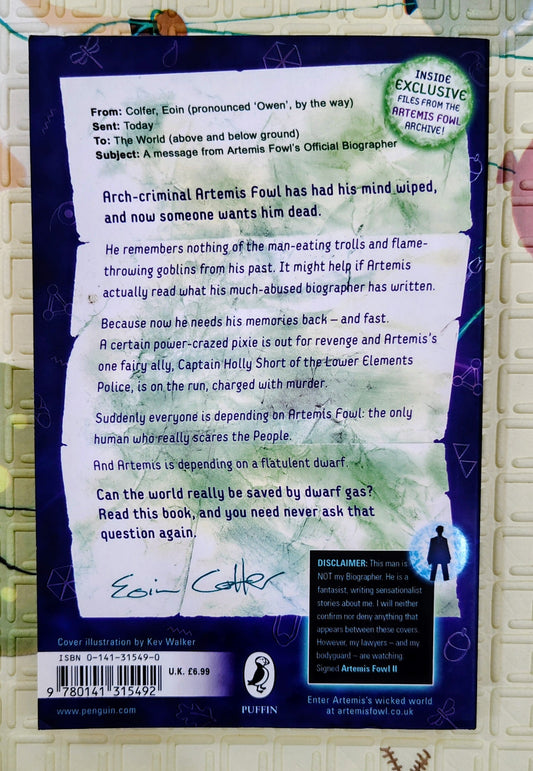 INSIDE
EXCLUSIVE
FILES FROM THE
ARTEMIS FOWL
ARCHIVE!
From: Colfer, Eoin (pronounced 'Owen', by the way)
Sent: Today
To: The World (above and below ground)
Subject: A message from Artemis Fowl's Official Biographer
Arch-criminal Artemis Fowl has had his mind wiped,
and now someone wants him dead.
He remembers nothing of the man-eating trolls and flame-
throwing goblins from his past. It might help if Artemis
actually read what his much-abused biographer has written.
Because now he needs his memories back – and fast.
A certain power-crazed pixie is out for revenge and Artemis's
one fairy ally, Captain Holly Short of the Lower Elements
Police, is on the run, charged with murder.
Suddenly everyone is depending on Artemis Fowl: the only
human who really scares the People.
And Artemis is depending on a flatulent dwarf.
Can the world really be saved by dwarf gas?
Read this book, and you need never ask that
question again.
Eoin Colfer
DISCLAIMER: This man is
NOT my Biographer. He is a
fantasist, writing sensationalist
stories about me. I will neither
confirm nor deny anything that
appears between these covers.
However, my lawyers – and my
bodyguard – are watching.
Signed Artemis Fowl II
Cover illustration by Kev Walker
ISBN 0-141-31549-0
9 780141 315492
U.K. £6.99
www.penguin.com
PUFFIN
Enter Artemis's wicked world
at artemisfowl.co.uk